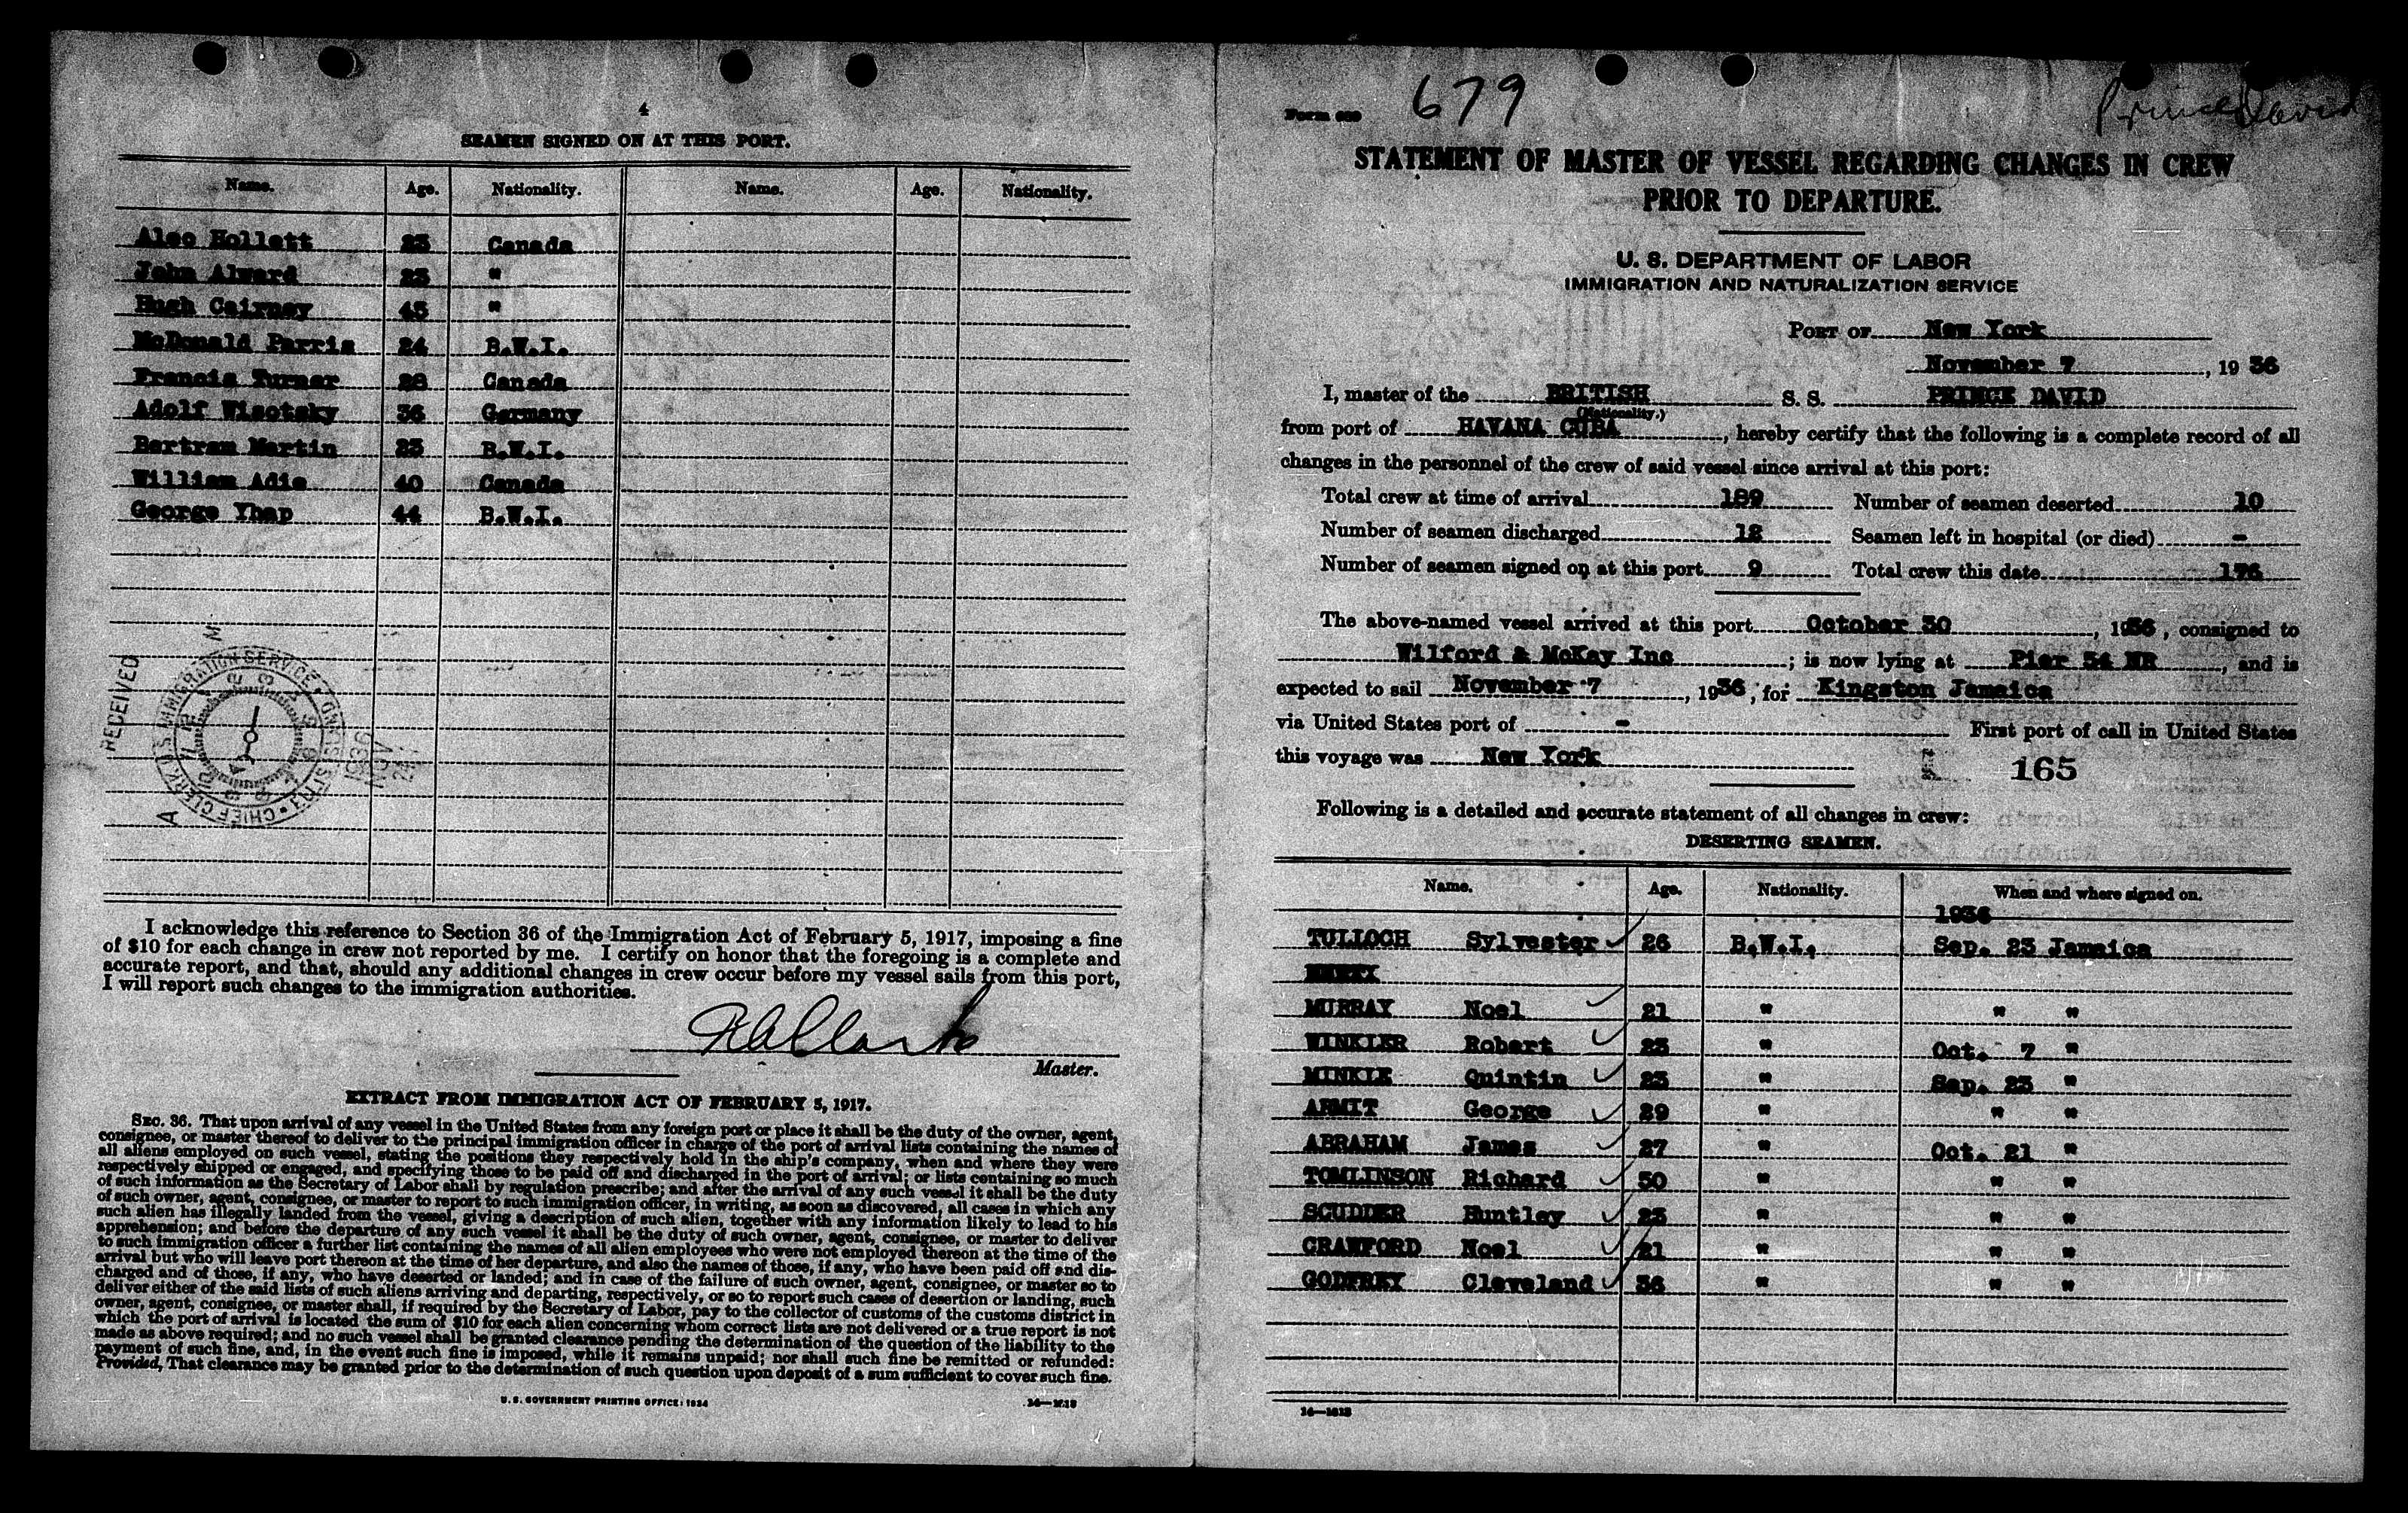 4
SEAMEN SIGNED ON AT THIS PORT.
Name. Age. Nationality. Name. Age. Nationality.
Alec Hollett 23 Canada
John Alward 23 "
Hugh Cairney 43 "
McDonald Parris 24 B.W.I.
Francis Turner 28 Canada
Adolf Wisotsky 36 Germany
Bertram Martin 23 B.W.I.
William Adie 40 Canada
George Yhap 44 B.W.I.
RECEIVED
CHIEF CLERK U.S. IMMIGRATION SERVICE
1936
NOV
I acknowledge this reference to Section 36 of the Immigration Act of February 5, 1917, imposing a fine
of $10 for each change in crew not reported by me. I certify on honor that the foregoing is a complete and
accurate report, and that, should any additional changes in crew occur before my vessel sails from this port,
I will report such changes to the immigration authorities.
Master.
EXTRACT FROM IMMIGRATION ACT OF FEBRUARY 5, 1917.
SEC. 36. That upon arrival of any vessel in the United States from any foreign port or place it shall be the duty of the owner, agent,
consignee, or master thereof to deliver to the principal immigration officer in charge of the port of arrival lists containing the names of
all aliens employed on such vessel, stating the positions they respectively hold in the ship's company, when and where they were
respectively shipped or engaged, and specifying those to be paid off and discharged in the port of arrival; or lists containing so much
of such information as the Secretary of Labor shall by regulation prescribe; and after the arrival of any such vessel it shall be the duty
of such owner, agent, consignee, or master to report to such immigration officer, in writing, as soon as discovered, all cases in which any
such alien has illegally landed from the vessel, giving a description of such alien, together with any information likely to lead to his
apprehension; and before the departure of any such vessel it shall be the duty of such owner, agent, consignee, or master to deliver
to such immigration officer a further list containing the names of all alien employees who were not employed thereon at the time of the
arrival but who will leave port thereon at the time of her departure, and also the names of those, if any, who have been paid off and dis-
charged and of those, if any, who have deserted or landed; and in case of the failure of such owner, agent, consignee, or master so to
deliver either of the said lists of such aliens arriving and departing, respectively, or so to report such cases of desertion or landing, such
owner, agent, consignee, or master shall, if required by the Secretary of Labor, pay to the collector of customs of the customs district in
which the port of arrival is located the sum of $10 for each alien concerning whom correct lists are not delivered or a true report is not
made as above required; and no such vessel shall be granted clearance pending the determination of the question of the liability to the
payment of such fine, and, in the event such fine is imposed, while it remains unpaid; nor shall such fine be remitted or refunded:
Provided, That clearance may be granted prior to the determination of such question upon deposit of a sum sufficient to cover such fine.
U. S. GOVERNMENT PRINTING OFFICE: 1934
Form 679
Prince David
STATEMENT OF MASTER OF VESSEL REGARDING CHANGES IN CREW
PRIOR TO DEPARTURE.
U. S. DEPARTMENT OF LABOR
IMMIGRATION AND NATURALIZATION SERVICE
PORT OF New York
November 7, 1936
I, master of the BRITISH S. S. PRINCE DAVID
(Nationality.)
from port of HAVANA CUBA, hereby certify that the following is a complete record of all
changes in the personnel of the crew of said vessel since arrival at this port:
Total crew at time of arrival 189 Number of seamen deserted 10
Number of seamen discharged 12 Seamen left in hospital (or died) -
Number of seamen signed on at this port 9 Total crew this date 176
The above-named vessel arrived at this port October 30, 1936, consigned to
Wilford & McKay Inc; is now lying at Pier 54 NR, and is
expected to sail November 7, 1936, for Kingston Jamaica
via United States port of - First port of call in United States
this voyage was New York
165
Following is a detailed and accurate statement of all changes in crew:
DESERTING SEAMEN.
Name. Age. Nationality. When and where signed on.
1936
TULLOCH Sylvester 26 B.W.I. Sep. 23 Jamaica
MURRAY Noel 21 " " "
WINKLER Robert 23 " Oct. 7 "
MINKIE Quintin 23 " Sep. 23 "
ARMIT George 29 " " "
ABRAHAM James 27 " Oct. 21 "
TOMLINSON Richard 50 " " "
SCUDDER Huntley 23 " " "
CRAWFORD Noel 21 " " "
GODFREY Cleveland 36 " " "